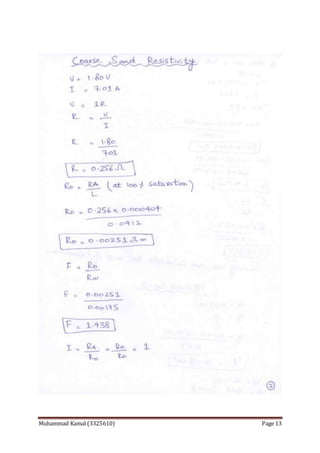 Coarse Sand Resistivity
V = 1.80 V
I = 7.01 A
V = IR
R = V / I
R = 1.80 / 7.01
R = 0.256 Ω
Ro = RA / L (at 100 % saturation)
Ro = 0.256 x 0.000404 / 0.0412
Ro = 0.00251 Ω m
F = Ro / Rw
F = 0.00251 / 0.00175
F = 1.438
I = Rt / Ro = Ro / Ro = 1
2
Muhammad Kamal (3325610) Page 13